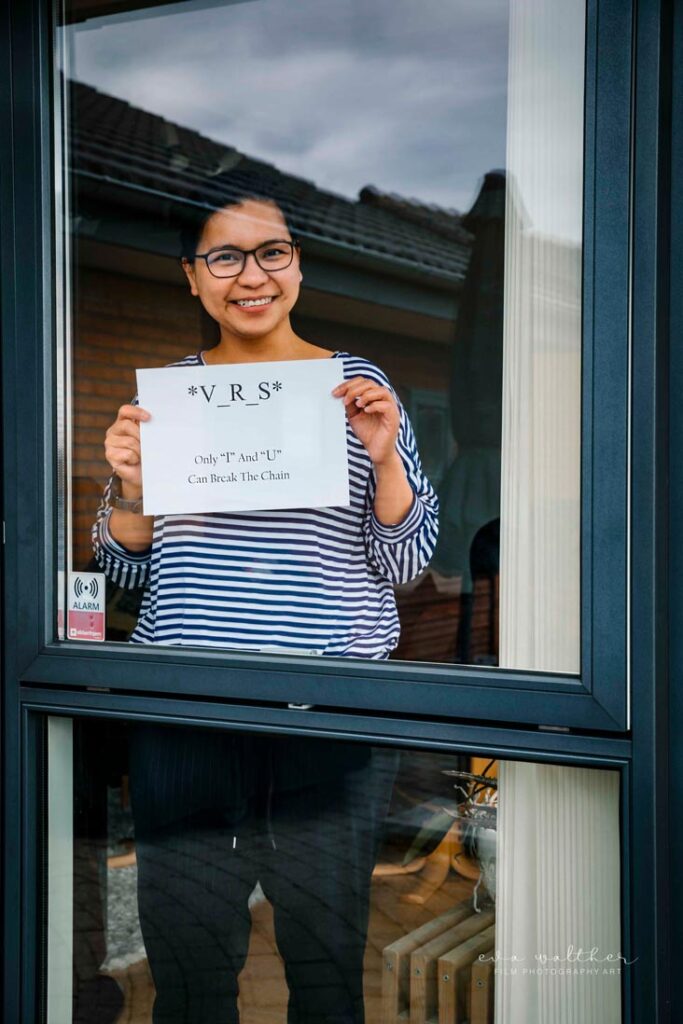 *V_R_S*
Only “I” And “U”
Can Break The Chain
ALARM
eva walther
FILM PHOTOGRAPHY ART